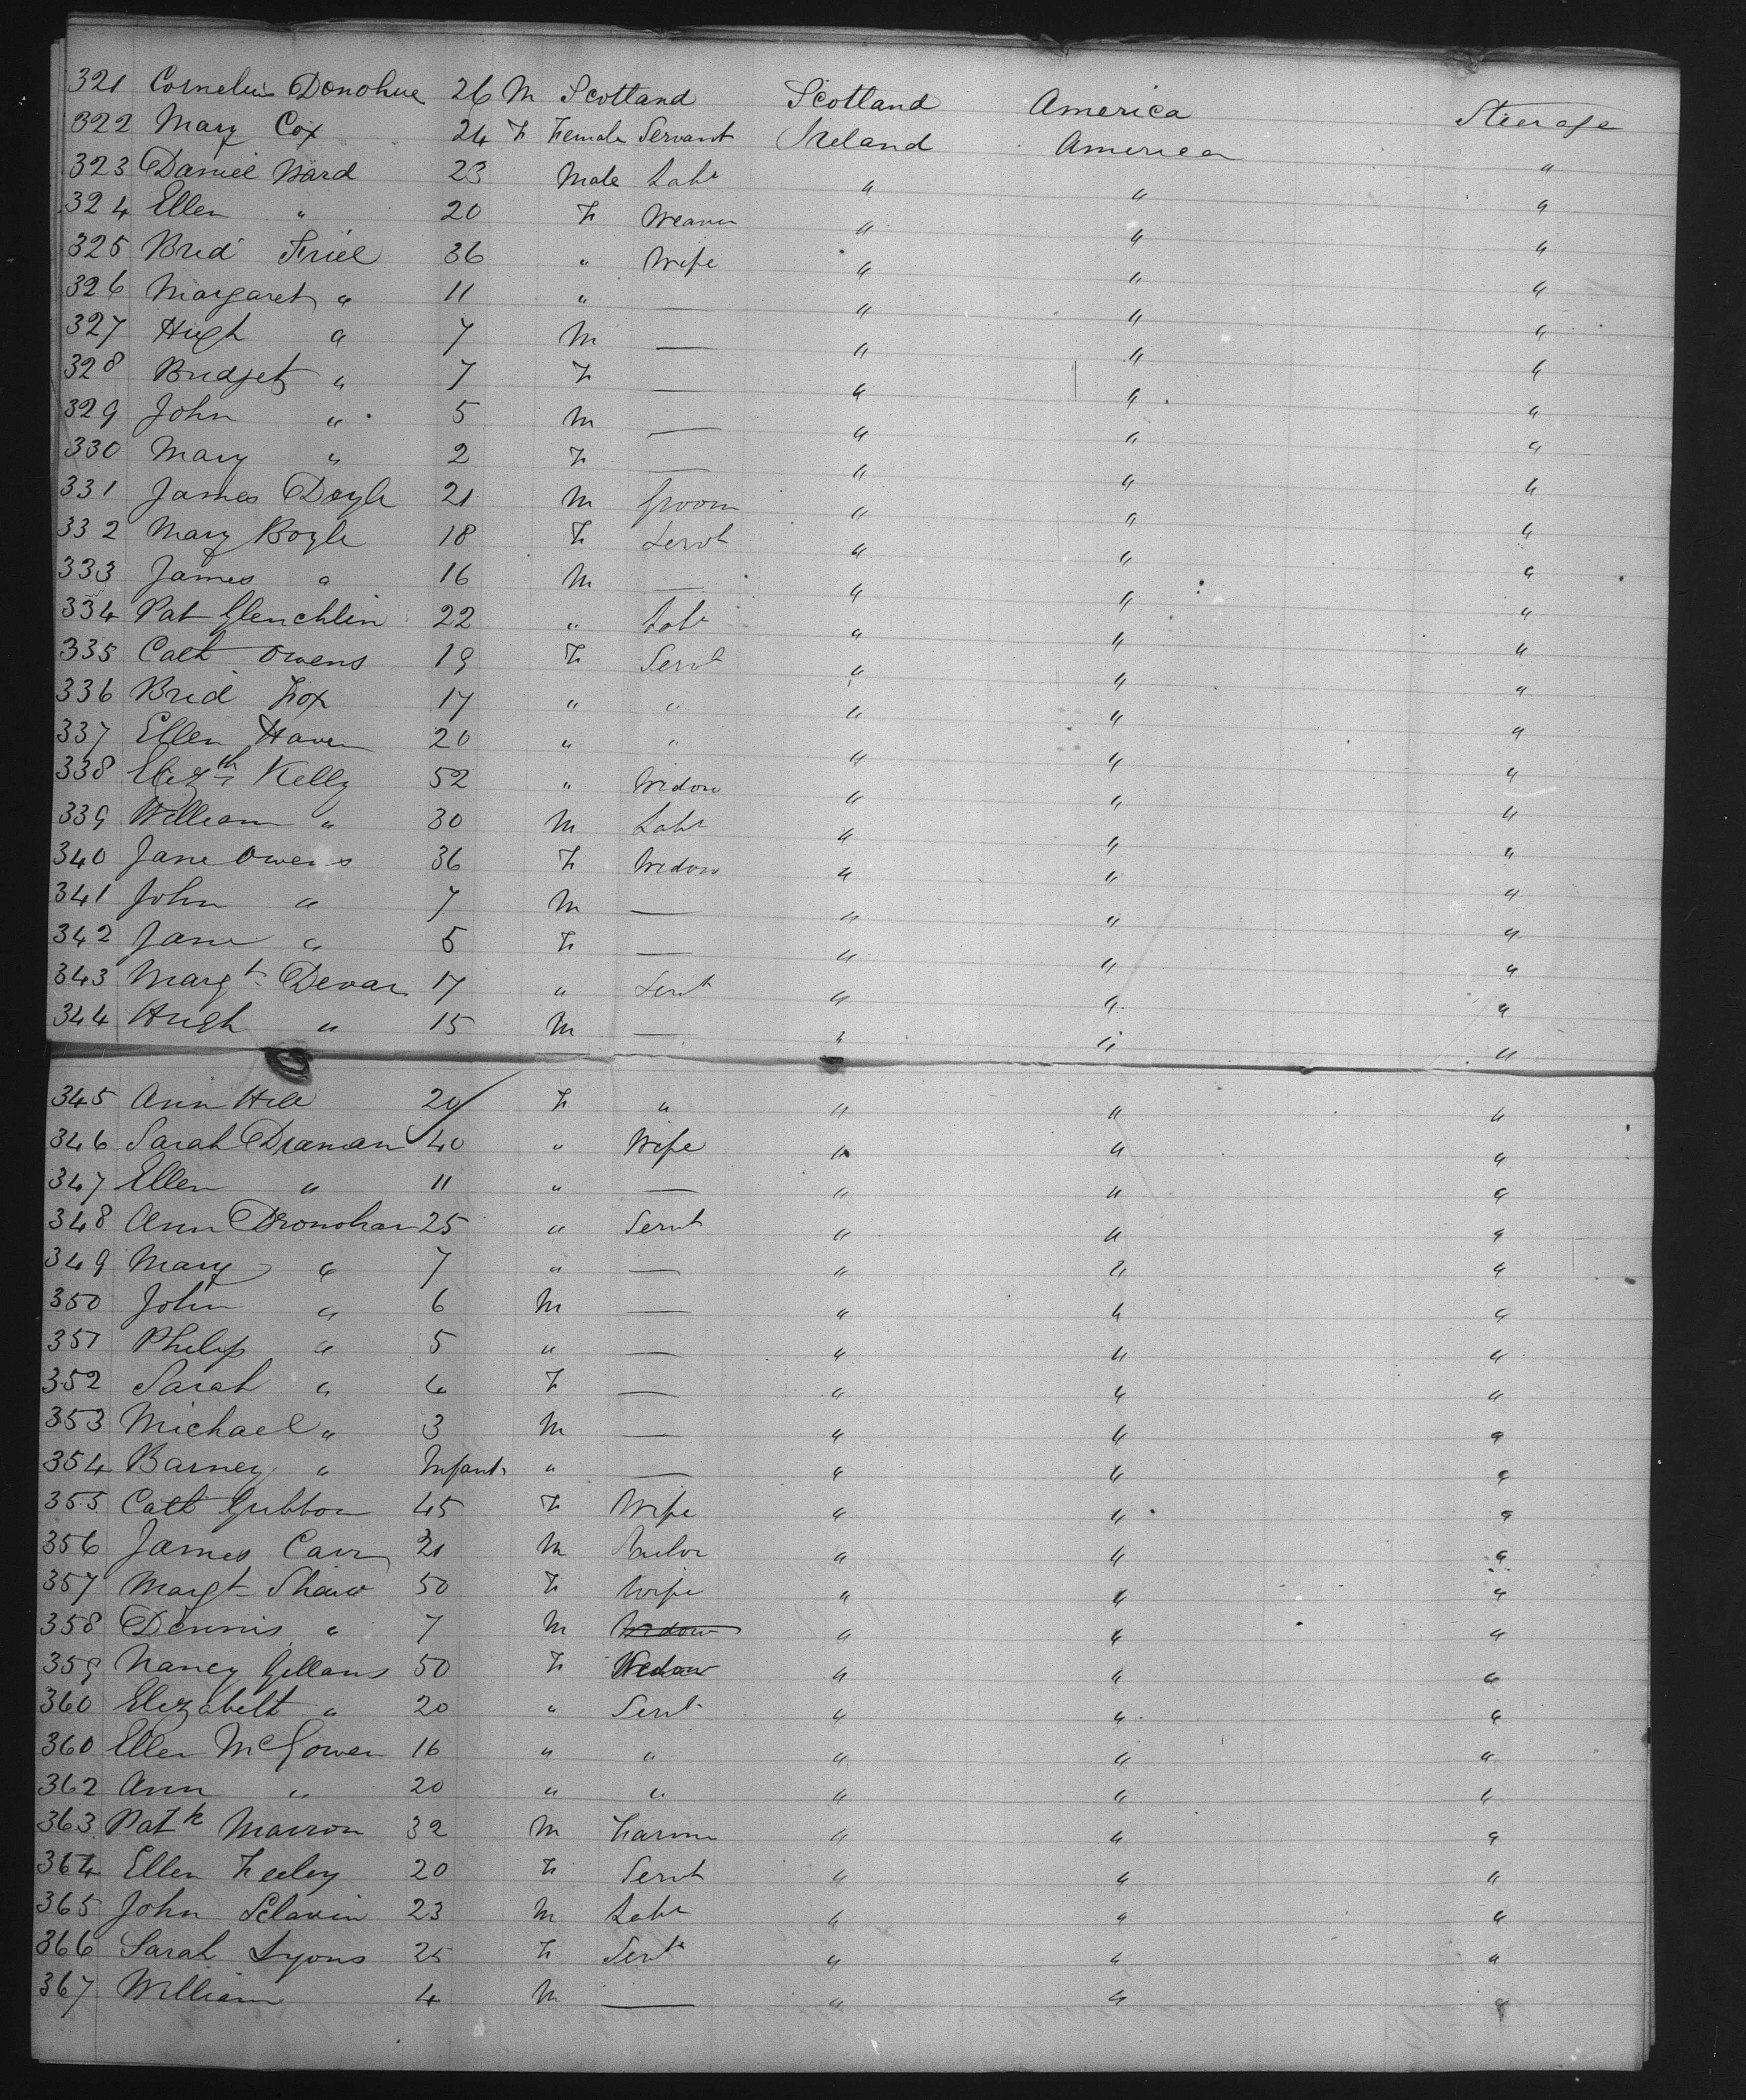 321 Cornelius Donohue 26 M Scotland Scotland America Steerage
322 Mary Cox 24 F Female Servant Ireland America "
323 Daniel Ward 23 Male Labr " " "
324 Ellen " 20 F Weaver " " "
325 Brid Friel 36 " Wife " " "
326 Margaret " 11 " — " " "
327 Hugh " 7 M — " " "
328 Bridget " 7 F — " " "
329 John " 5 M — " " "
330 Mary " 2 F — " " "
331 James Doyle 21 M Groom " " "
332 Mary Boyle 18 F Servt " " "
333 James " 16 M — " " "
334 Pat Glenchlin 22 " Labr " " "
335 Cath Owens 19 F Servt " " "
336 Brid Fox 17 " " " " "
337 Ellen Haven 20 " " " " "
338 Elizth Kelly 52 " Widow " " "
339 William " 30 M Labr " " "
340 Jane Owens 36 F Widow " " "
341 John " 7 M — " " "
342 Jane " 5 F — " " "
343 Margt Devar 17 " Servt " " "
344 Hugh " 15 M — " " "
345 Ann Hill 20 F " " " "
346 Sarah Dianan 40 " Wife " " "
347 Ellen " 11 " — " " "
348 Ann Dronohan 25 " Servt " " "
349 Mary " 7 " — " " "
350 John " 6 M — " " "
351 Philip " 5 " — " " "
352 Sarah " 4 F — " " "
353 Michael " 3 M — " " "
354 Barney " Infant " — " " "
355 Cath Gibbon 45 F Wife " " "
356 James Carr 21 M Sailor " " "
357 Margt Shaw 50 F Wife " " "
358 Dennis " 7 M Widow " " "
359 Nancy Gillans 50 F Widow " " "
360 Elizabeth " 20 " Servt " " "
360 Ellen McGowen 16 " " " " "
362 Ann " 20 " " " " "
363 Patk Marron 32 M Farmr " " "
364 Ellen Feeley 20 F Servt " " "
365 John Slavin 23 M Labr " " "
366 Sarah Lyons 25 F Servt " " "
367 William 4 M — " " "